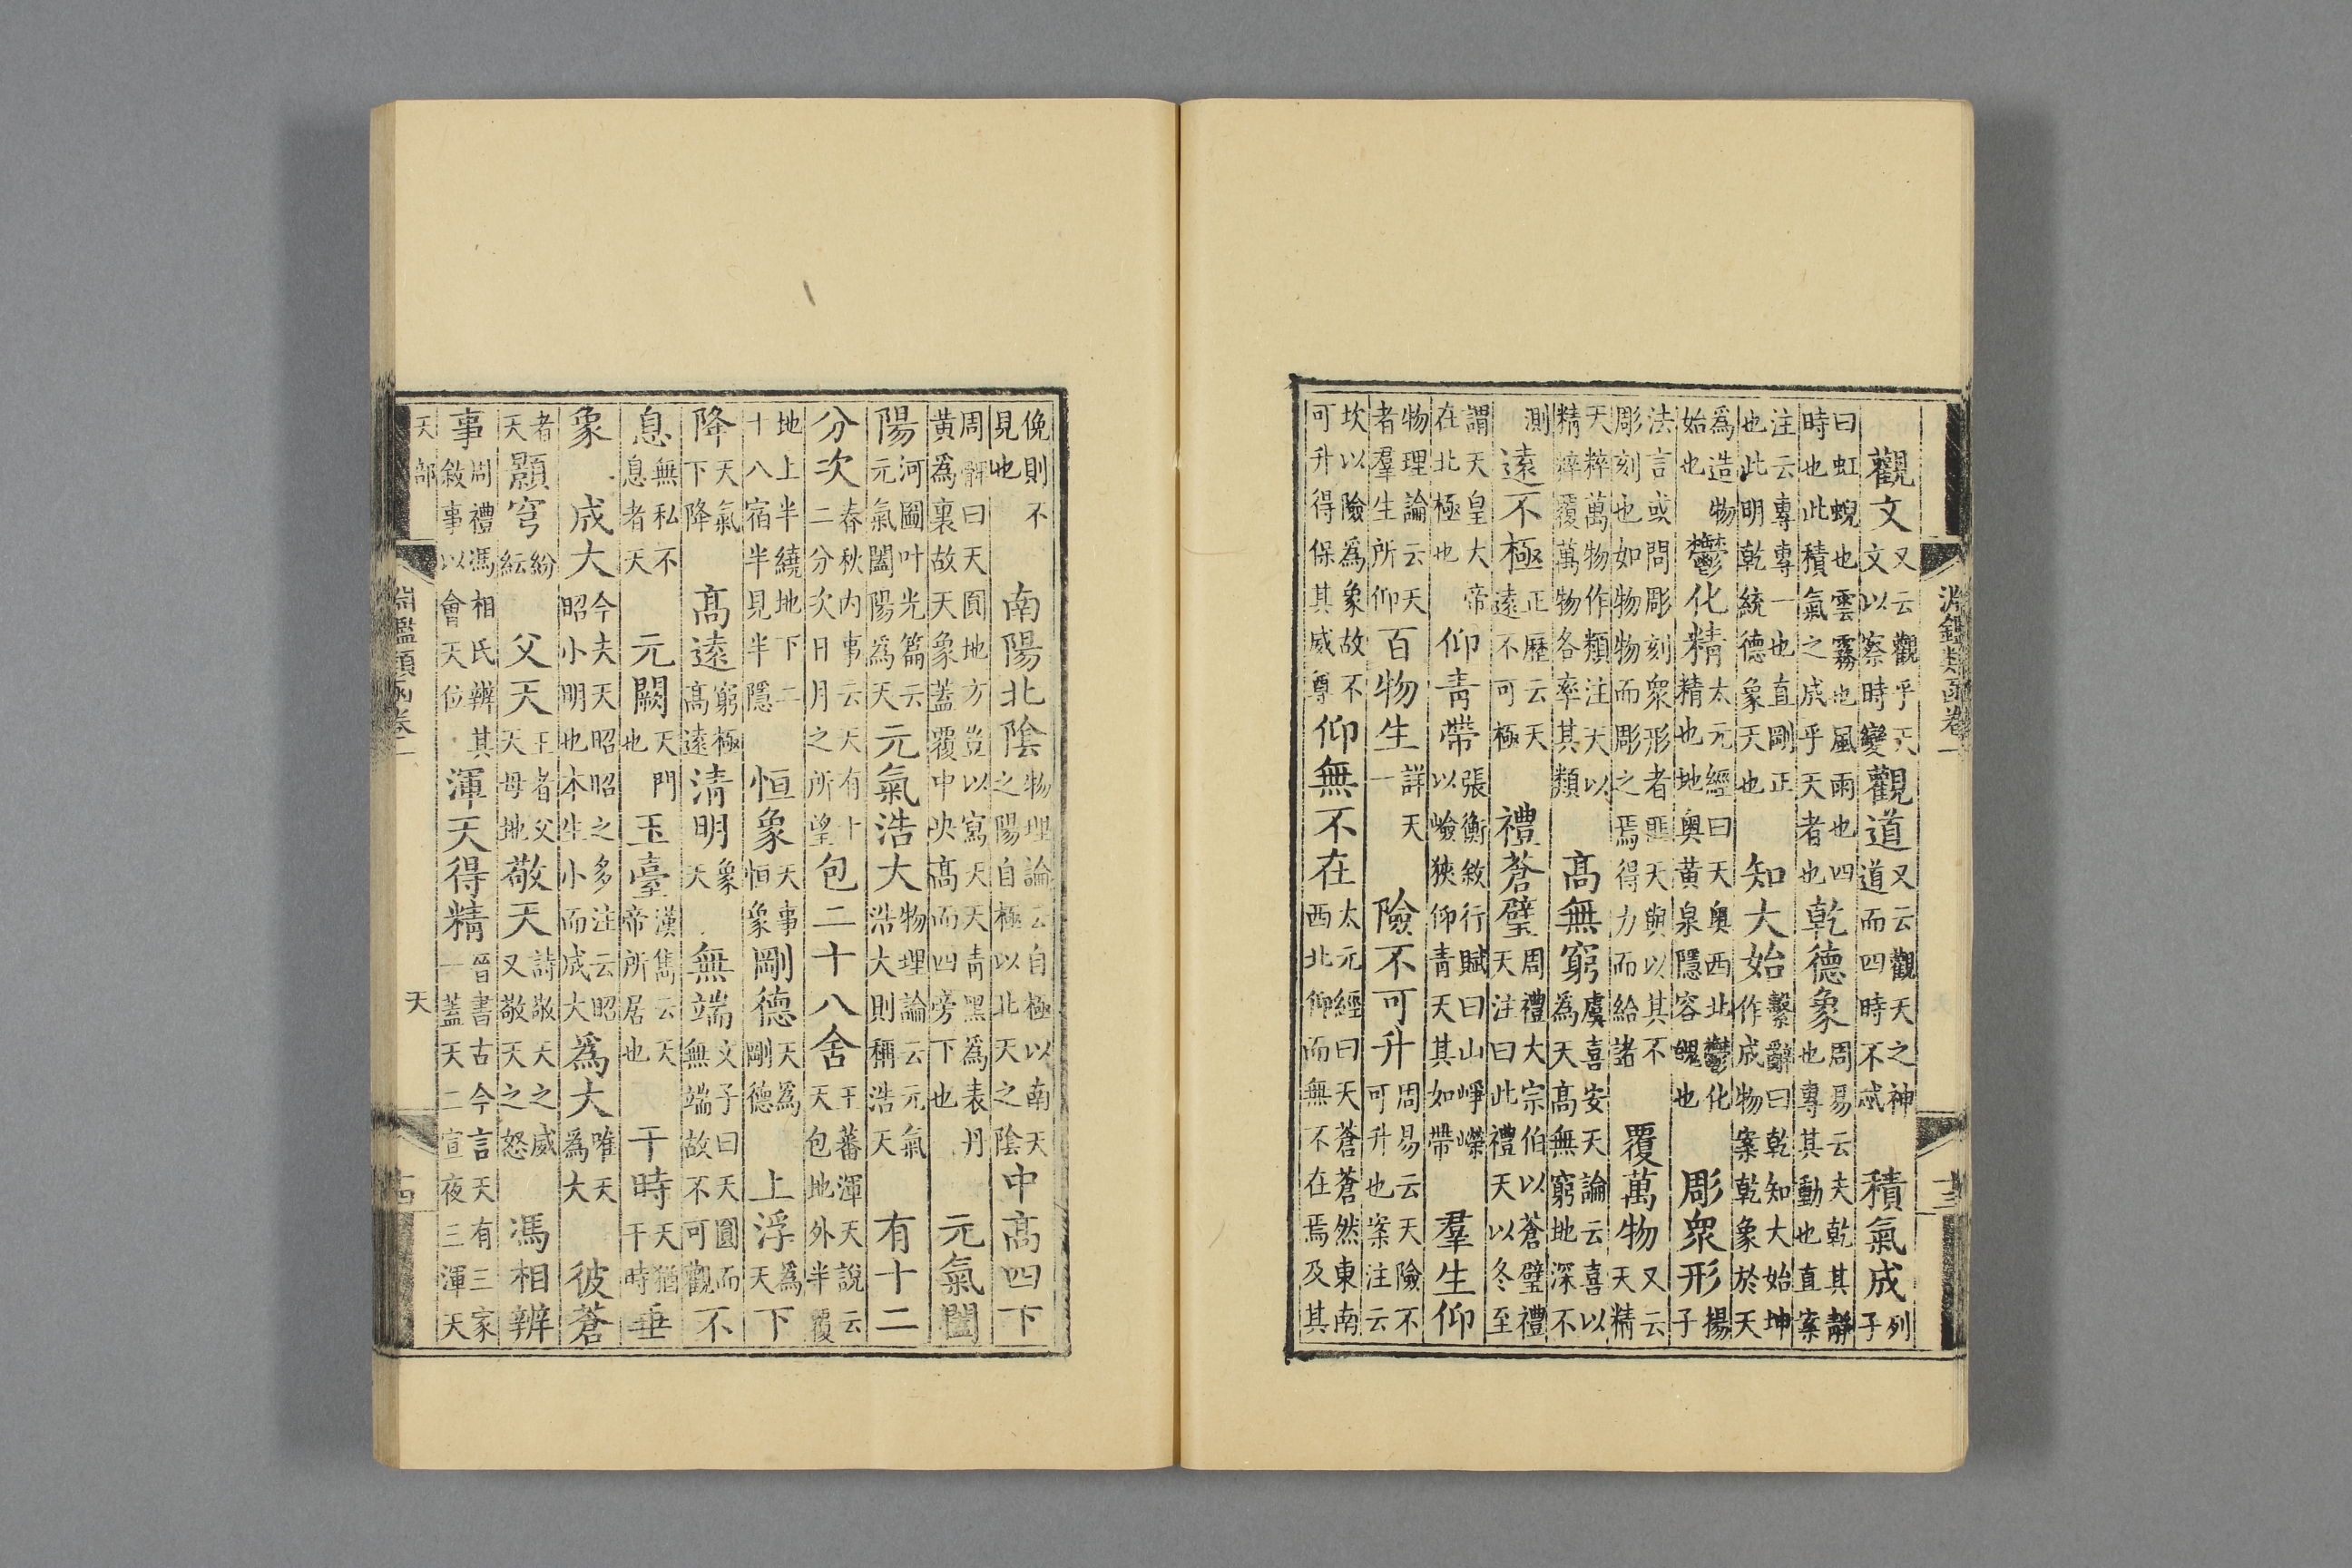 淵鑑類函卷一 十三
觀文又云觀乎天文以察時變觀道又云觀天之神道而四時不忒 積氣成列子
曰虹蜺也雲霧也風雨也四時也此積氣之成乎天者也 乾德象周易云夫乾其靜也專其動也直案
注云專專一也直剛正也此明乾統德象天也 知大始繫辭曰乾知大始坤作成物案乾象於天
為造物始也 鬱化精太元經曰天奧西北鬱化精也地奧黃泉隱容魄也 彫衆形揚子
法言或問彫刻衆形者匪天與以其不彫刻也如物物而彫之焉得力而給諸 覆萬物又云天精
天粹萬物作類注大以精粹覆萬物各率其類 高無窮虞喜安天論云喜以為天高無窮地深不
測 遠不極正歷云天遠不可極 禮蒼璧周禮大宗伯以蒼璧禮天注曰此禮天以冬至
謂天皇大帝在北極也 仰青帶張衡敘行賦曰山崢嶸以嶮狹仰青天其如帶 羣生仰
物理論云天者羣生所仰 百物生詳天一 險不可升周易云天險不可升也案注云
坎以險為象故不可升得保其威尊 仰無不在太元經曰天蒼蒼然東南西北仰而無不在焉及其
俛則不見也 南陽北陰物理論云自極以南天之陽自極以北天之陰 中高四下
周髀曰天圓地方豈以寫天天青黑為表丹黃為裏故天象蓋覆中央高而四旁下也 元氣闓
陽河圖叶光篇云元氣闓陽為天 元氣浩大物理論云元氣浩大則稱浩天 有十二
分次春秋内事云天有十二分次日月之所望 包二十八舍王蕃渾天說云天包地外半覆
地上半繞地下二十八宿半見半隱 恒象天事恒象 剛德天為剛德 上浮為天 下
降天氣下降 高遠窮極高遠 清明象天 無端文子曰天圓而無端故不可觀 不
息無私不息者天 元闕天門也 玉臺漢雋云天帝所居也 干時天猶干時 垂
象 成大今夫天昭昭之多注云昭昭小明也本生小而成大 為大唯天為大 彼蒼
者天 顥穹紛紜 父天王者父天母地 敬天詩敬天之威又敬天之怒 馮相辨
事周禮馮相氏辨其敘事以會天位 渾天得精晉書古今言天有三家一蓋天二宣夜三渾天
天部 淵鑑類函卷一 天 十四